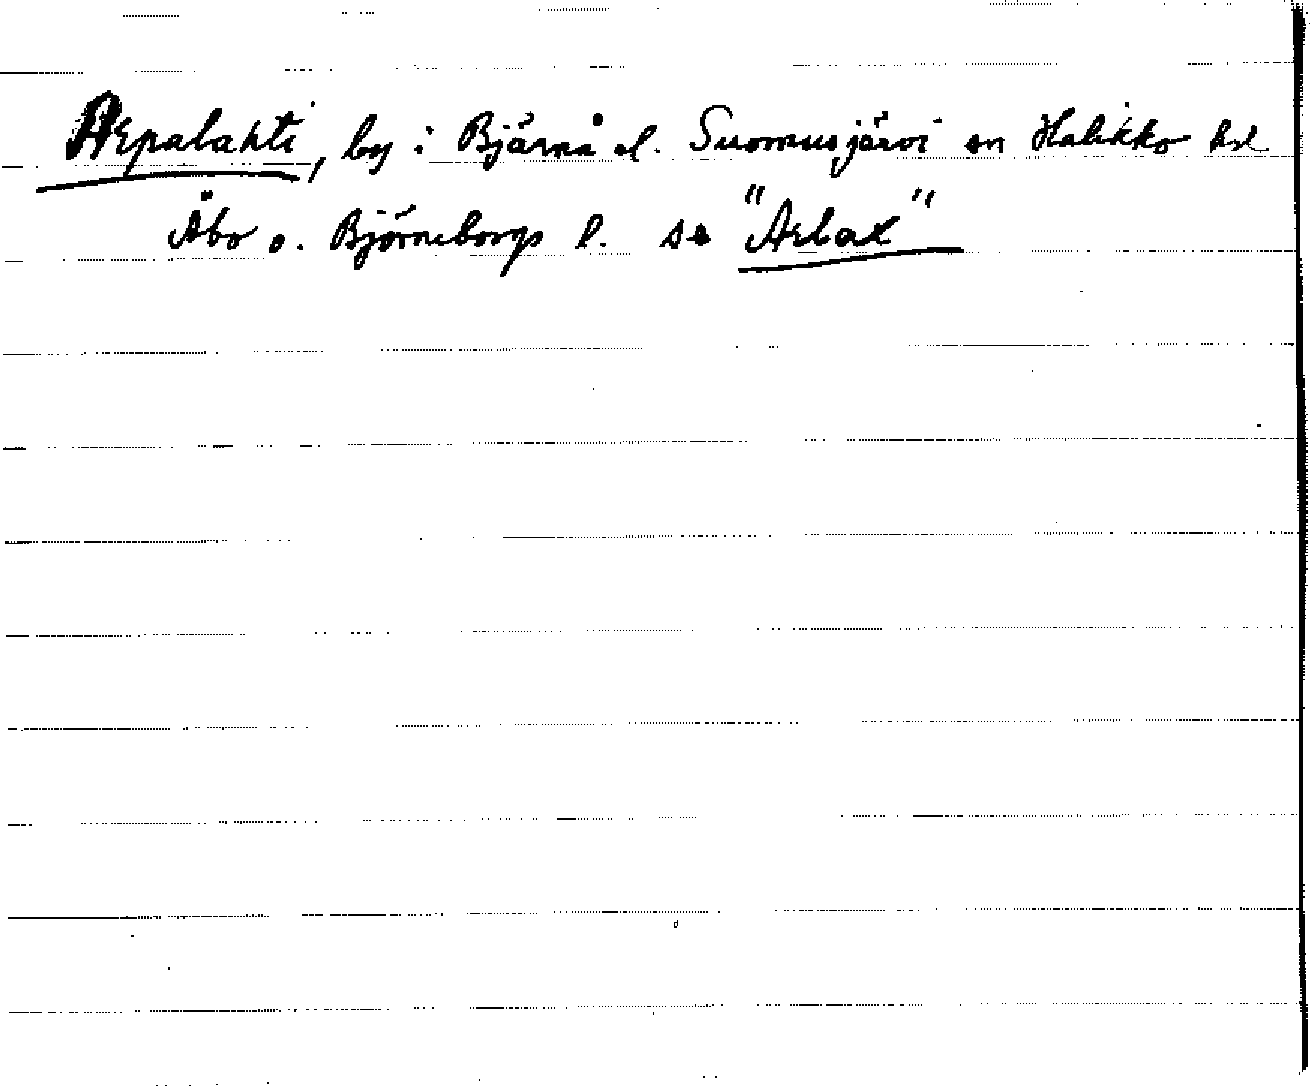 Arpalahti, by i Bjärnå el. Suomusjärvi sn Halikko hd
Åbo o. Björneborgs l. se "Arlax"